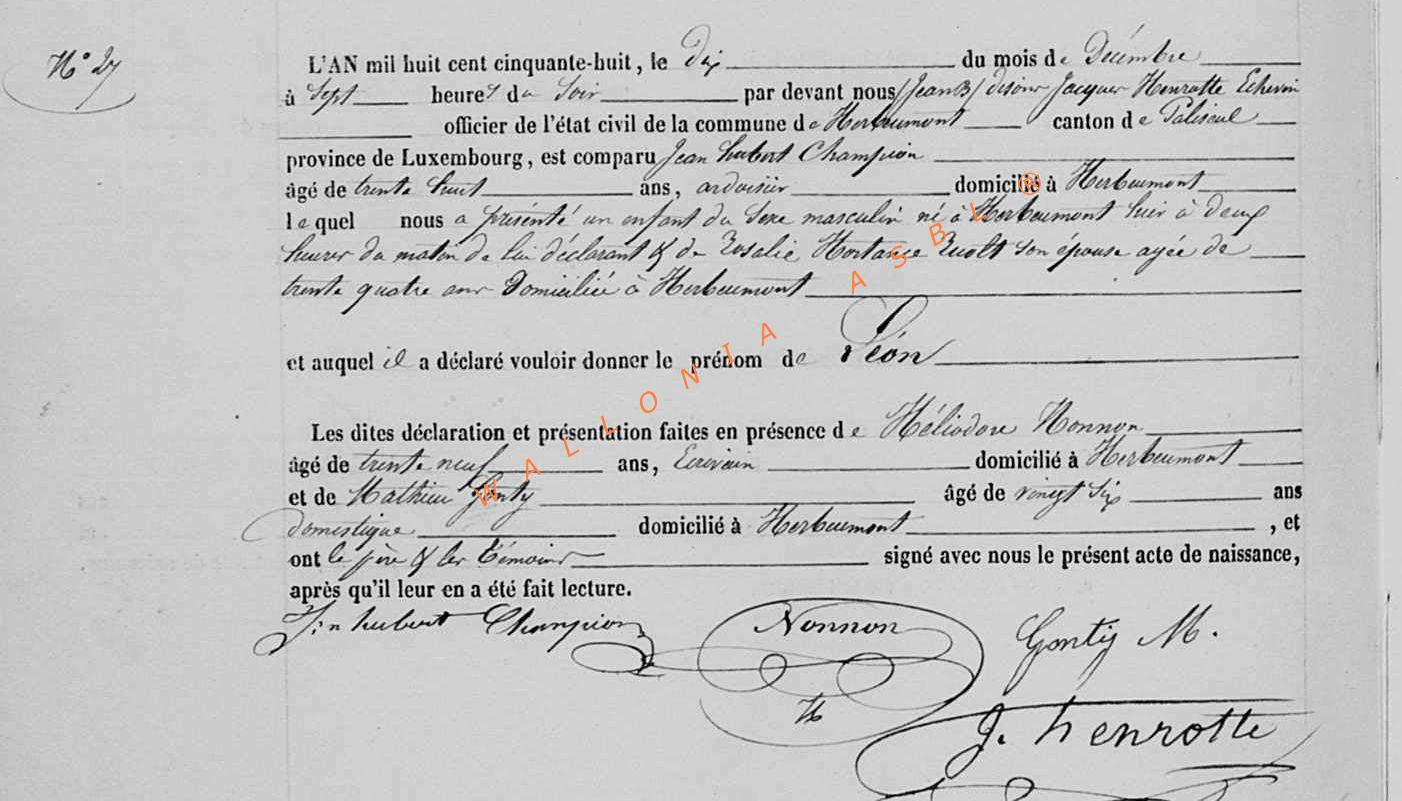 N° 27
L'AN mil huit cent cinquante-huit, le Dix du mois de Décembre
à Sept heures du Soir par devant nous (Jean B) disons Jacques Henrotte Echevin
officier de l'état civil de la commune de Herbeumont canton de Paliseul
province de Luxembourg, est comparu Jean hubert Champion
âgé de trente huit ans, ardoisier domicilié à Herbeumont
lequel nous a présenté un enfant du Sexe masculin né à Herbeumont hier à deux
heures du matin de lui déclarant & de Rosalie Hortance son épouse agée de
trente quatre ans Domiciliée à Herbeumont
et auquel il a déclaré vouloir donner le prénom de Léon
Les dites déclaration et présentation faites en présence de Héliodore Nonnon
âgé de trente neuf ans, Ecrivain domicilié à Herbeumont
et de Mathieu Gonty âgé de vingt Six ans
domestique domicilié à Herbeumont, et
ont le père & les témoins signé avec nous le présent acte de naissance,
après qu'il leur en a été fait lecture.
J:n hubert Champion Nonnon Gontij M.
H
J. henrotte
WALLONIA ASBL ®